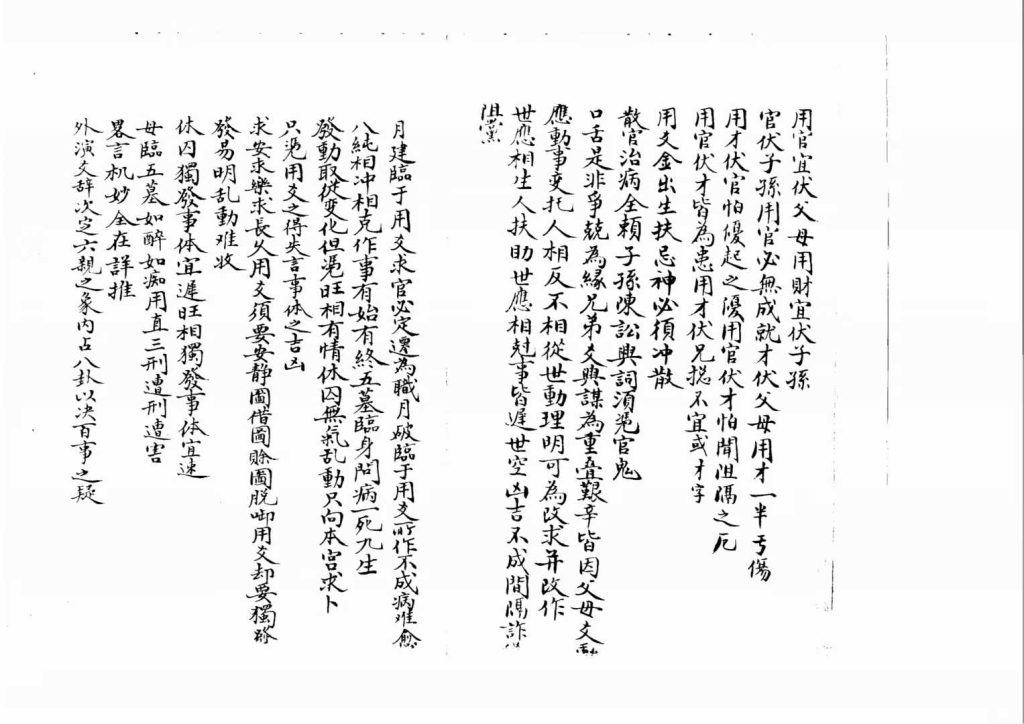 用官宜伏父母用財宜伏子孫
官伏子孫用官必無成就才伏父母用才一半亏傷
用才伏官怕優起之優用官伏才怕聞阻隔之厄
用官伏才皆為患用才伏兄揔不宜或才字
用爻金出生扶忌神必須冲散
散官治病全頼子孫陳訟興詞須凴官鬼
口舌是非爭競為縁兄弟爻興謀為重叠艱辛皆因父母爻動
應動事変托人相反不相從世動理明可為改求并改作
世應相生人扶助世應相尅事皆遲世空凶吉不成間隔詐
阻黨
月建臨于用爻求官必定遷為職月破臨于用爻所作不成病难愈
八純相冲相克作事有始有終五墓臨身問病一死九生
發動取從变化但凴旺相有情休囚無氣乱動只向本宫求卜
只凴用爻之得失言事体之吉凶
求安求樂求長久用爻須要安静圖借圖賒圖脱啣用爻却要獨發
發易明乱動难收
休囚獨發事体宜遲旺相獨發事体宜速
母臨五墓如醉如痴用直三刑遭刑遭害
畧言机妙全在詳推
外演爻辞次定六親之象内占八卦以决百事之疑